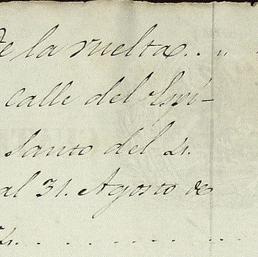 de la vuelta . . . .
calle del Espí-
santo del 21.
al 31. Agosto de